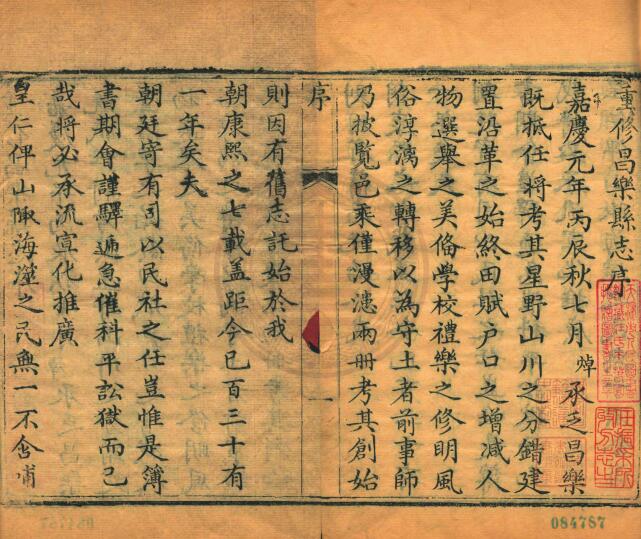 重修昌樂縣志序
嘉慶元年丙辰秋七月焯承乏昌樂
既抵任將考其星野山川之分錯建
置沿革之始終田賦戶口之增減人
物選舉之美俻學校禮樂之修明風
俗淳漓之轉移以為守土者前事師
乃披覽邑乘僅漫漶兩冊考其創始
序
一
則因有舊志託始於我
朝康熙之七載盖距今已百三十有
一年矣夫
朝廷寄有司以民社之任豈惟是簿
書期會謹驛遞急催科平訟獄而已
哉將必承流宣化推廣
皇仁俾山陬海澨之民無一不含哺
084787